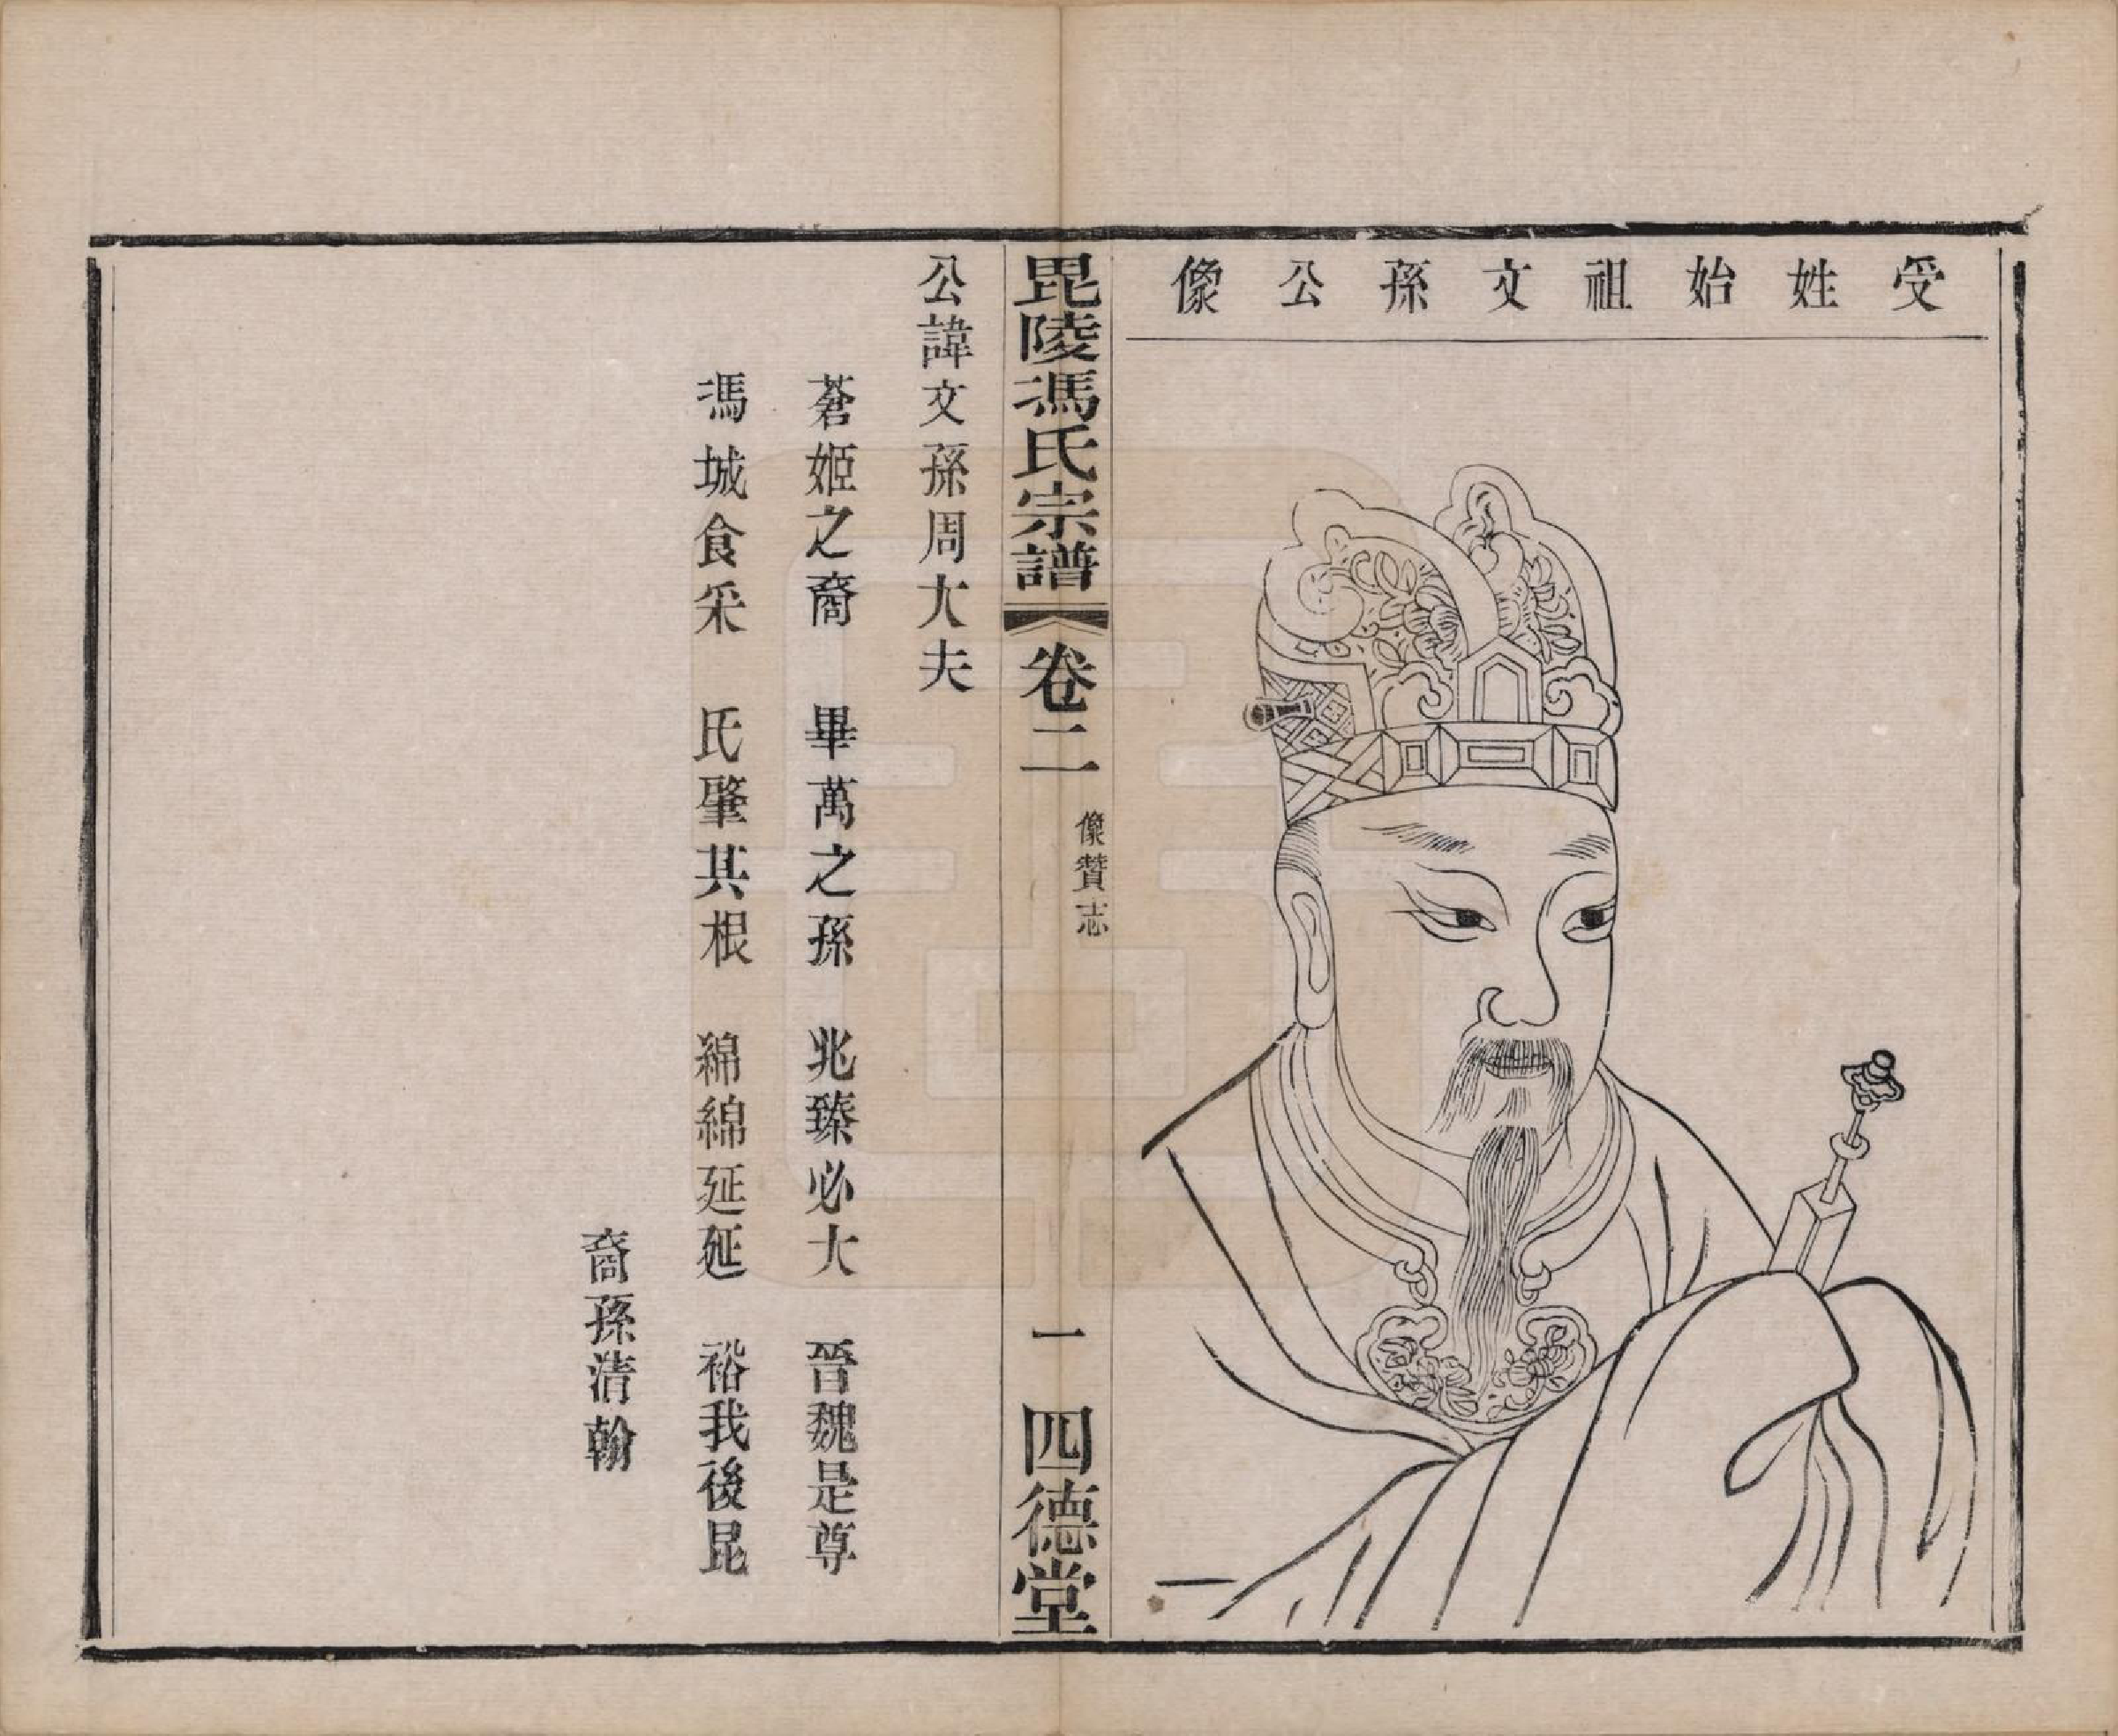 受姓始祖文孫公像
毘陵馮氏宗譜
卷二
像贊志
一
四德堂
公諱文孫周大夫
蒼姬之裔　畢萬之孫　兆臻必大　晉魏是尊
馮城食采　氏肇其根　綿綿延延　裕我後昆
裔孫清翰